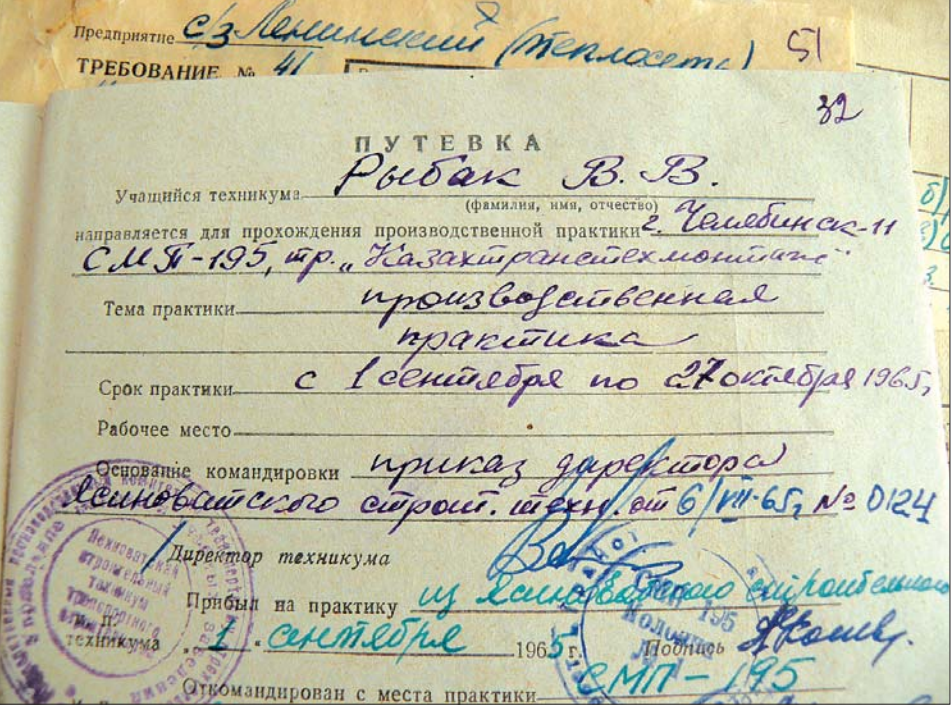 Предприятие с/з Ленинский (теплосеть) 51
ТРЕБОВАНИЕ № 41
32
ПУТЕВКА
Учащийся техникума Рыбак В. В.
(фамилия, имя, отчество)
направляется для прохождения производственной практики г. Челябинск-11
СМП-195, тр. „Казахтранстехмонтаж"
Тема практики производственная
практика
Срок практики с 1 сентября по 27 октября 1965г
Рабочее место
Основание командировки приказ директора
Ясиноватского строит. техн. от 6/VII-65г № 0124
Директор техникума
Прибыл на практику из Ясиноватского строительного
техникума „1" сентября 1965 г. Подпись
СМП-195
Откомандирован с места практики
Ясиноватский
строительный
техникум
транспортного
195
Колонна